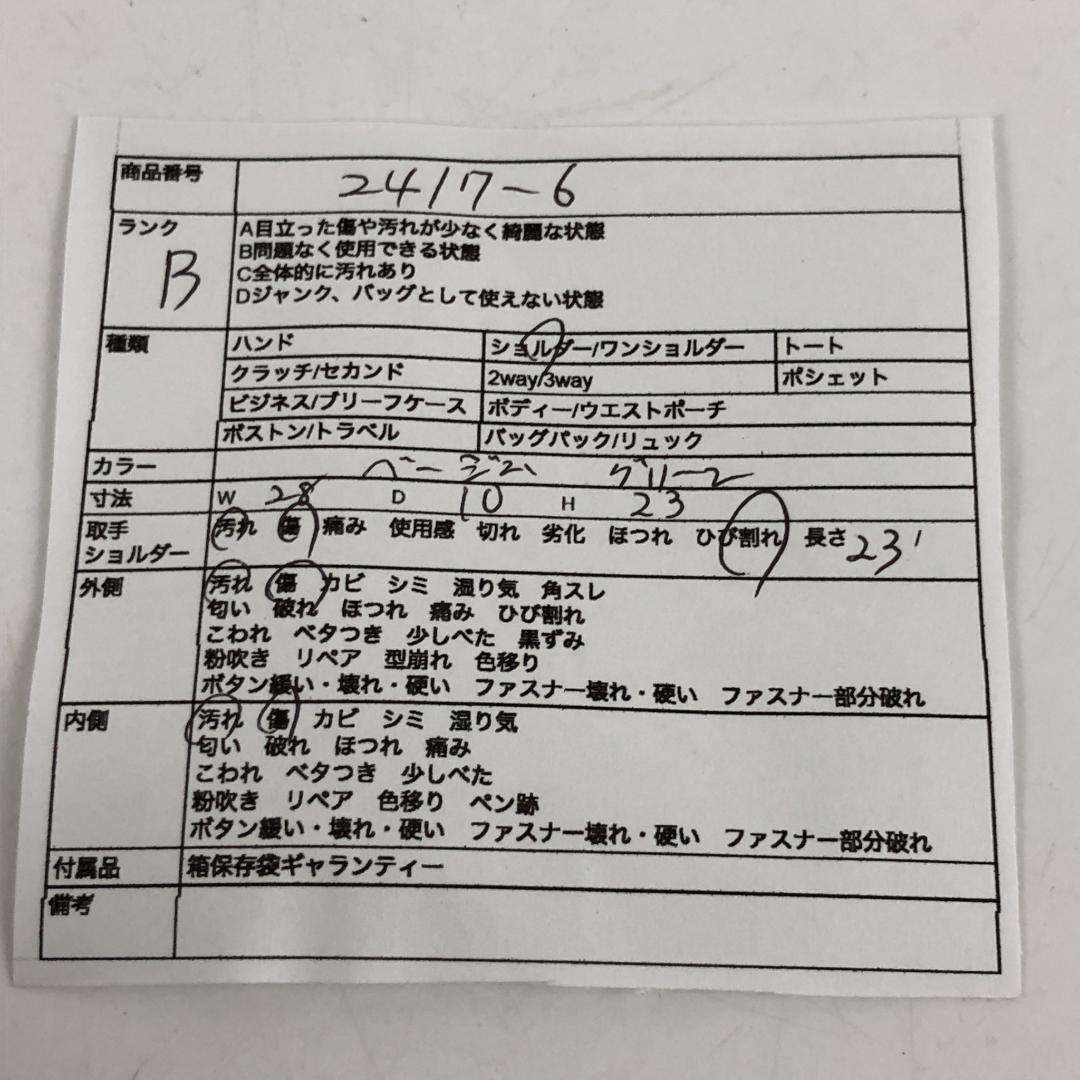 商品番号 2417-6
ランク B
A目立った傷や汚れが少なく綺麗な状態
B問題なく使用できる状態
C全体的に汚れあり
Dジャンク、バッグとして使えない状態
種類 ハンド ショルダー/ワンショルダー トート
クラッチ/セカンド 2way/3way ポシェット
ビジネス/ブリーフケース ボディー/ウエストポーチ
ボストン/トラベル バッグパック/リュック
カラー グリーン
寸法 W 28 D 10 H 23
取手 汚れ 傷 痛み 使用感 切れ 劣化 ほつれ ひび割れ 長さ 23
ショルダー
外側 汚れ 傷 カビ シミ 湿り気 角スレ
匂い 破れ ほつれ 痛み ひび割れ
こわれ ベタつき 少しべた 黒ずみ
粉吹き リペア 型崩れ 色移り
ボタン緩い・壊れ・硬い ファスナー壊れ・硬い ファスナー部分破れ
内側 汚れ 傷 カビ シミ 湿り気
匂い 破れ ほつれ 痛み
こわれ ベタつき 少しべた
粉吹き リペア 色移り ペン跡
ボタン緩い・壊れ・硬い ファスナー壊れ・硬い ファスナー部分破れ
付属品 箱保存袋ギャランティー
備考